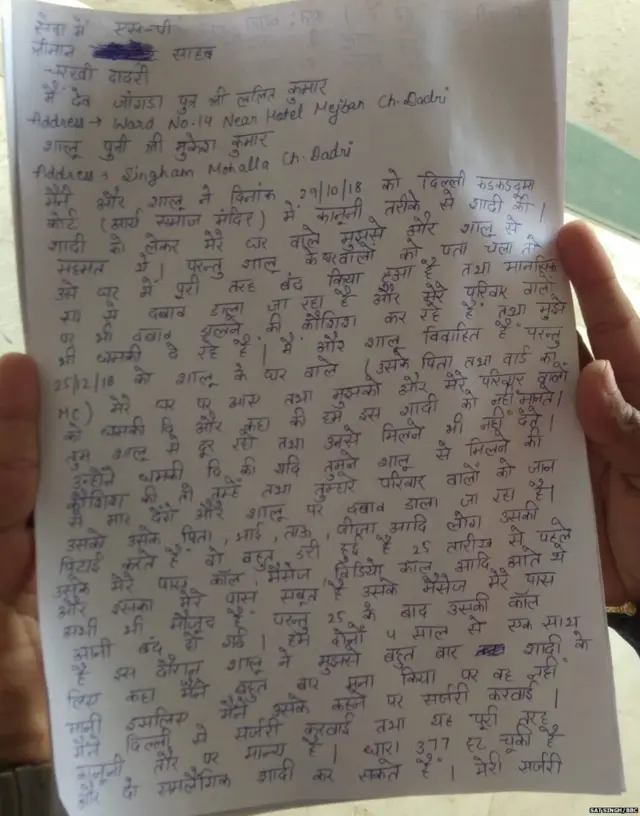 सेवा में एस-पी
श्रीमान साहब
चरखी दादरी
मैं देव जांगडा पुत्र श्री ललित कुमार
Address → Ward No. 14 Near Hotel Mejban Ch. Dadri
शालू पुत्री श्री मुकेश कुमार
Address → Singham Mohalla Ch. Dadri
मैंने और शालू ने दिनांक 29/10/18 को दिल्ली कडकडडूमा
कोर्ट (आर्य समाज मंदिर) में कानूनी तरीके से शादी की |
शादी को लेकर मेरे घर वाले मुझसे और शालू से
सहमत थे | परन्तु शालू के घरवालों को पता चला तो
उसे घर में पूरी तरह बंद किया हुआ है तथा मानसिक
रूप से दबाव डाला जा रहा है और मेरे परिवार वालों
पर भी दबाव डालने की कोशिश कर रहे हैं तथा मुझे
भी धमकी दे रहे हैं | मैं और शालू विवाहित हैं परन्तु
25/12/18 को शालू के घर वाले (उसके पिता तथा वार्ड का
MC) मेरे घर पर आए तथा मुझको और मेरे परिवार वालों
को धमकी दि और कहा की हम इस शादी को नहीं मानते |
तुम शालू से दूर रहो तथा उससे मिलने भी नहीं देते |
उन्होंने धमकी दि की यदि तुमने शालू से मिलने की
कोशिश की तो तुम्हें तथा तुम्हारे परिवार वालों को जान
से मार देंगे और शालू पर दबाव डाला जा रहा है |
उसको उसके पिता, भाई, ताऊ, जीजा आदि लोग उसकी
पिटाई करते हैं वो बहुत डरी हुई है 25 तारीख से पहले
उसके मेरे पास कॉल, मैसेज, विडियो काल आदि आते थे
और इसका मेरे पास सबूत है उसके मैसेज मेरे पास
अभी भी मौजूद हैं परन्तु 25 के बाद उसकी कॉल
आनी बंद हो गई | हम दोनों 4 साल से एक साथ
है इस दौरान शालू ने मुझसे बहुत बार शादी के
लिए कहा मैंने बहुत बार मना किया पर वह नहीं
मानी इसलिए मैंने उसके कहने पर सर्जरी करवाई |
मैंने दिल्ली में सर्जरी करवाई तथा यह पूरी तरह
कानूनी तौर पर मान्य है | धारा 377 हट चूकी है
और दो समलैंगिक शादी कर सकते हैं | मेरी सर्जरी
SAT SINGH/BBC